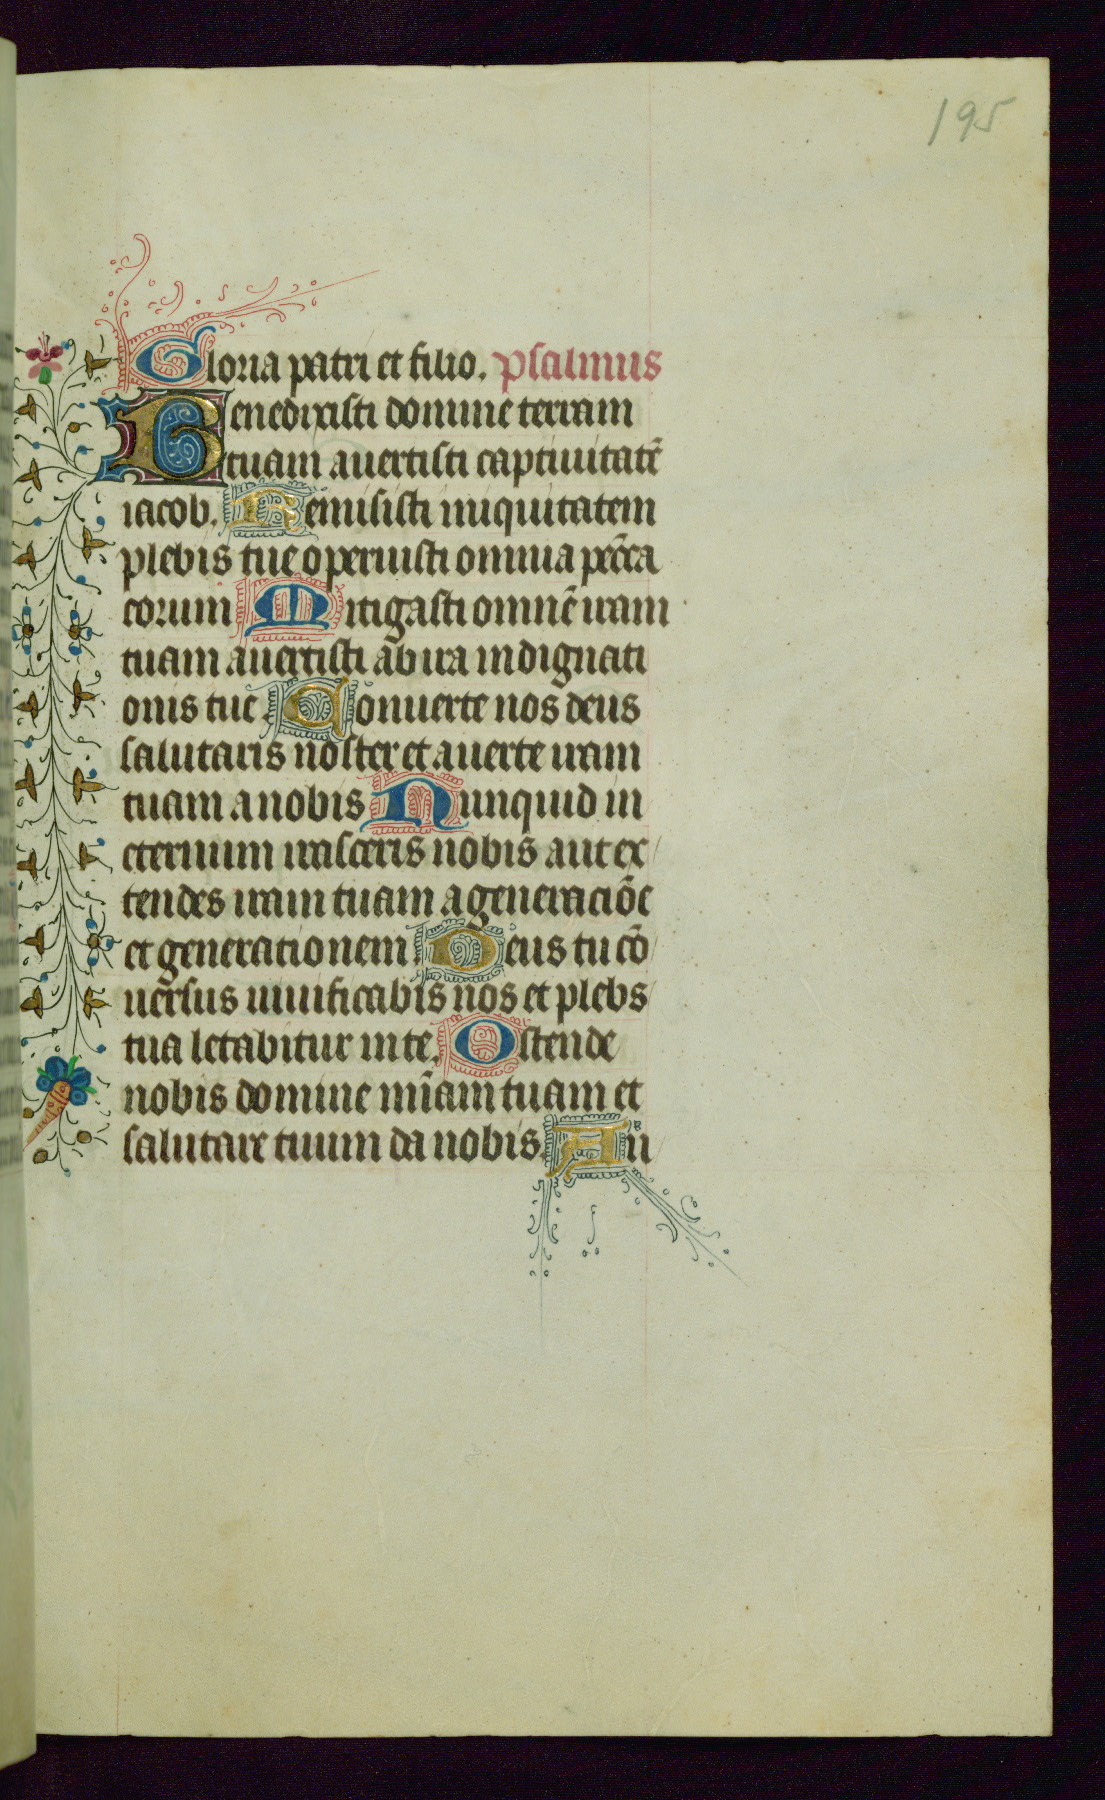 195
Gloria patri et filio. psalmus
Benedixisti domine terram
tuam auertisti captiuitatē
iacob. Remisisti iniquitatem
plebis tue operuisti omnia pc̄cta
eorum Mitigasti omnē iram
tuam auertisti ab ira indignati
onis tue. Conuerte nos deus
salutaris noster et auerte iram
tuam a nobis Nunquid in
eternum irasceris nobis aut ex
tendes iram tuam a generaciōe
et generationem. Deus tu cō
uersus uiuificabis nos et plebs
tua letabitur in te. Ostende
nobis domine mīam tuam et
salutare tuum da nobis. Au